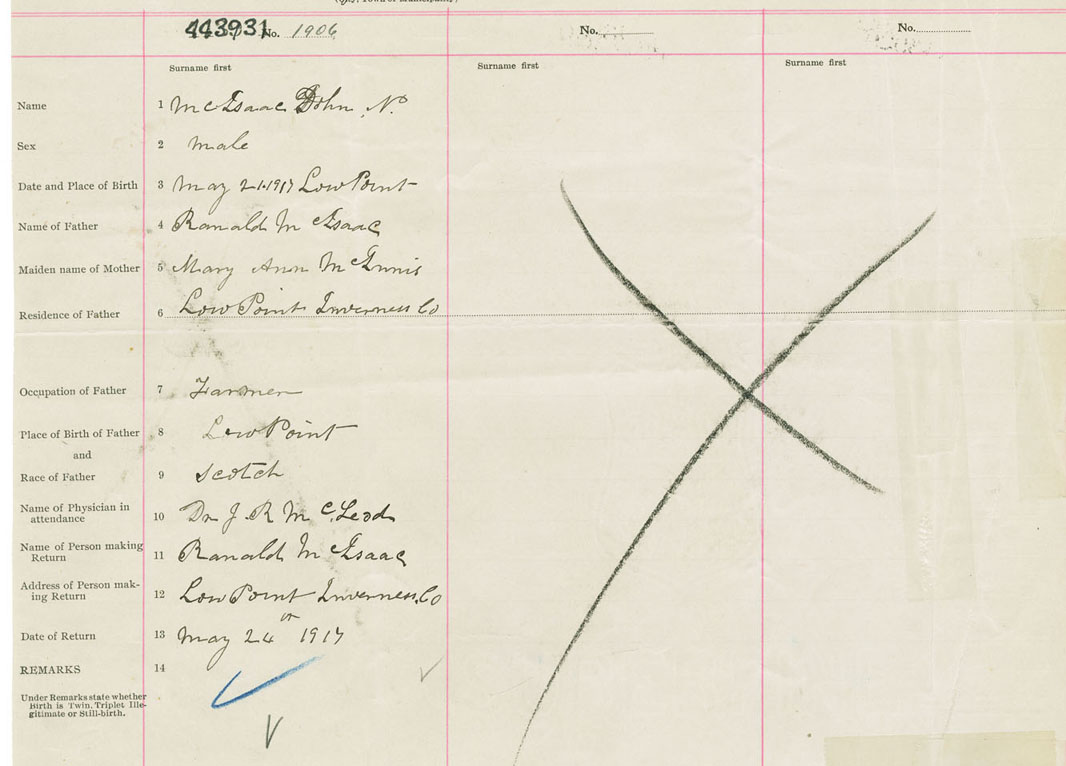 443931 No. 1906
No.
No.
Surname first
Surname first
Surname first
Name 1 McIsaac John N.
Sex 2 male
Date and Place of Birth 3 May 21.1917 Low Point
Name of Father 4 Ranald McIsaac
Maiden name of Mother 5 Mary Ann McInnis
Residence of Father 6 Low Point Inverness Co
Occupation of Father 7 Farmer
Place of Birth of Father 8 Low Point
and
Race of Father 9 Scotch
Name of Physician in
attendance 10 Dr J. R McLeod
Name of Person making
Return 11 Ranald McIsaac
Address of Person mak-
ing Return 12 Low Point Inverness, Co
Date of Return 13 May 24th 1917
REMARKS 14
Under Remarks state whether
Birth is Twin, Triplet Ille-
gitimate or Still-birth.